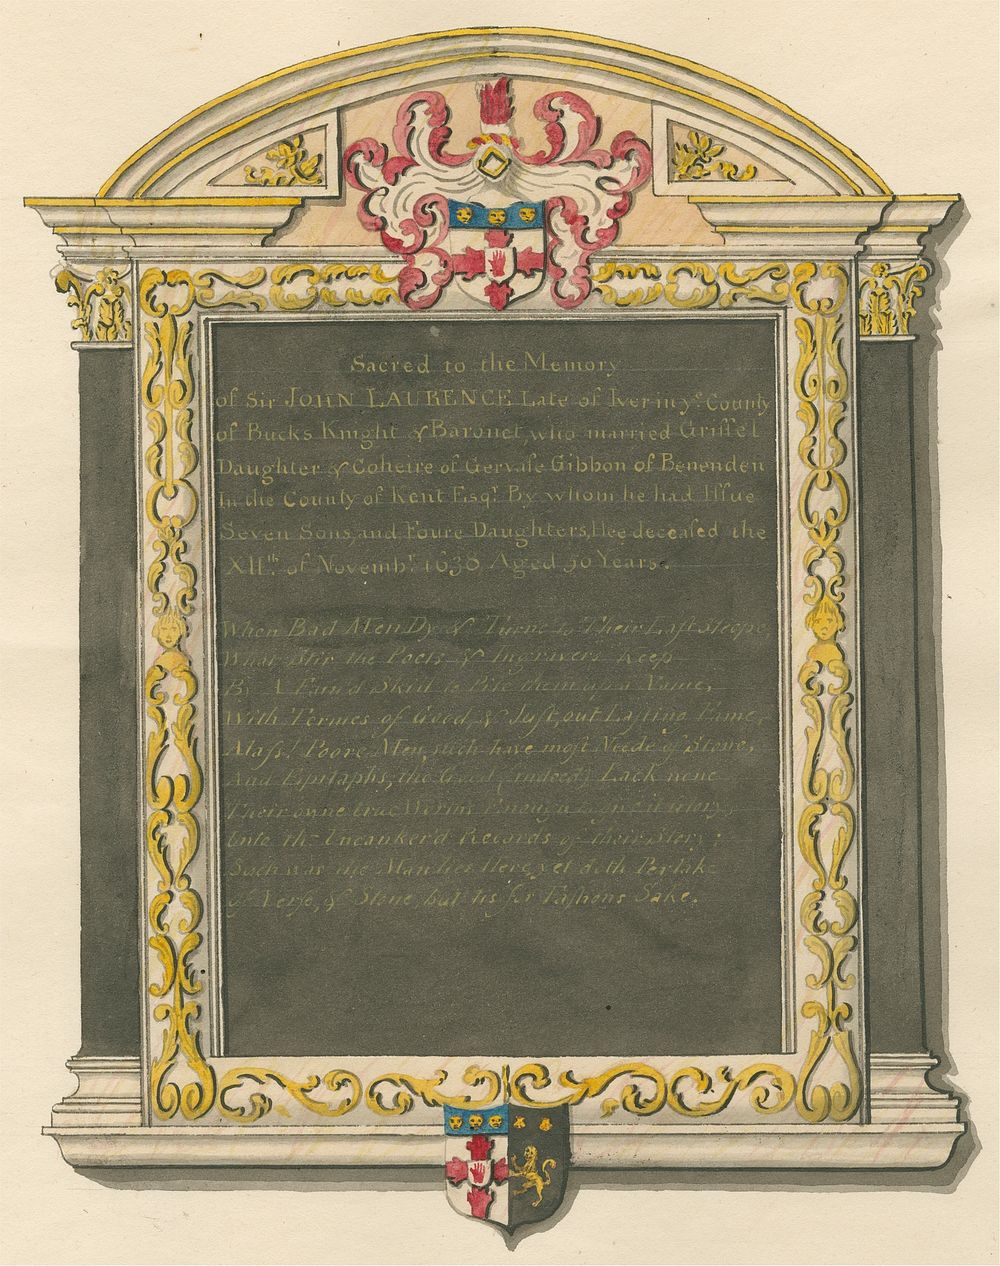 Sacred to the Memory
of Sir JOHN LAURENCE Late of Iver in yᵉ County
of Bucks Knight & Baronet, who married Grissel
Daughter & Coheire of Gervaſe Gibbon of Benenden
In the County of Kent Esqʳ. By whom he had Iſſue
Seven Sons, and Foure Daughters, Hee deceaſed the
XIIᵗʰ. of Novembʳ. 1638 Aged 50 Years.
When Bad Men Dy & Turne to Their Laſt Sleepe,
What Stir the Poets & Ingravers keep
By A Fain'd Skill to Pile them up a Name,
With Termes of Good & Juſt, out Laſting Fame,
Alaſs! Poore Men, such have moſt Neede of Stone,
And Epitaphs, the Good (indeed) Lack none
Their owne true Worths Enough
Unto the Uncanker'd Records of their Story:
Such was the Man lies Here, yet doth Partake
of Verse, & Stone but tis for Faſhions Sake.